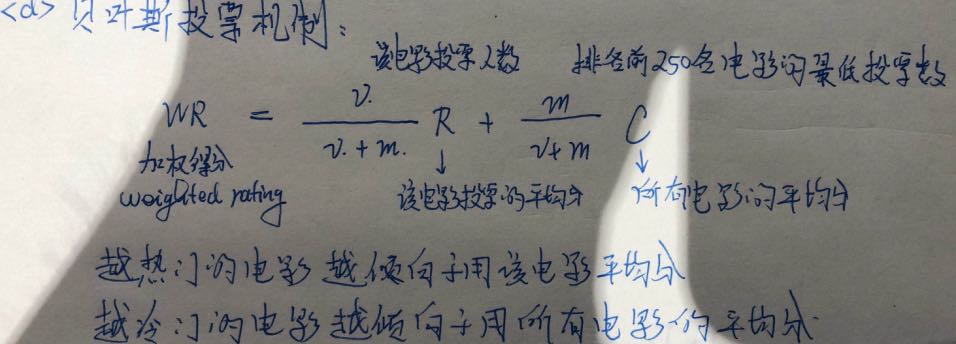 <d> 贝叶斯投票机制:
该电影投票人数 排名前250名电影的最低投票数
WR = v/(v+m) R + m/(v+m) C
加权得分
weighted rating 该电影投票的平均分 所有电影的平均分
越热门的电影越倾向于用该电影平均分
越冷门的电影越倾向于用所有电影的平均分.